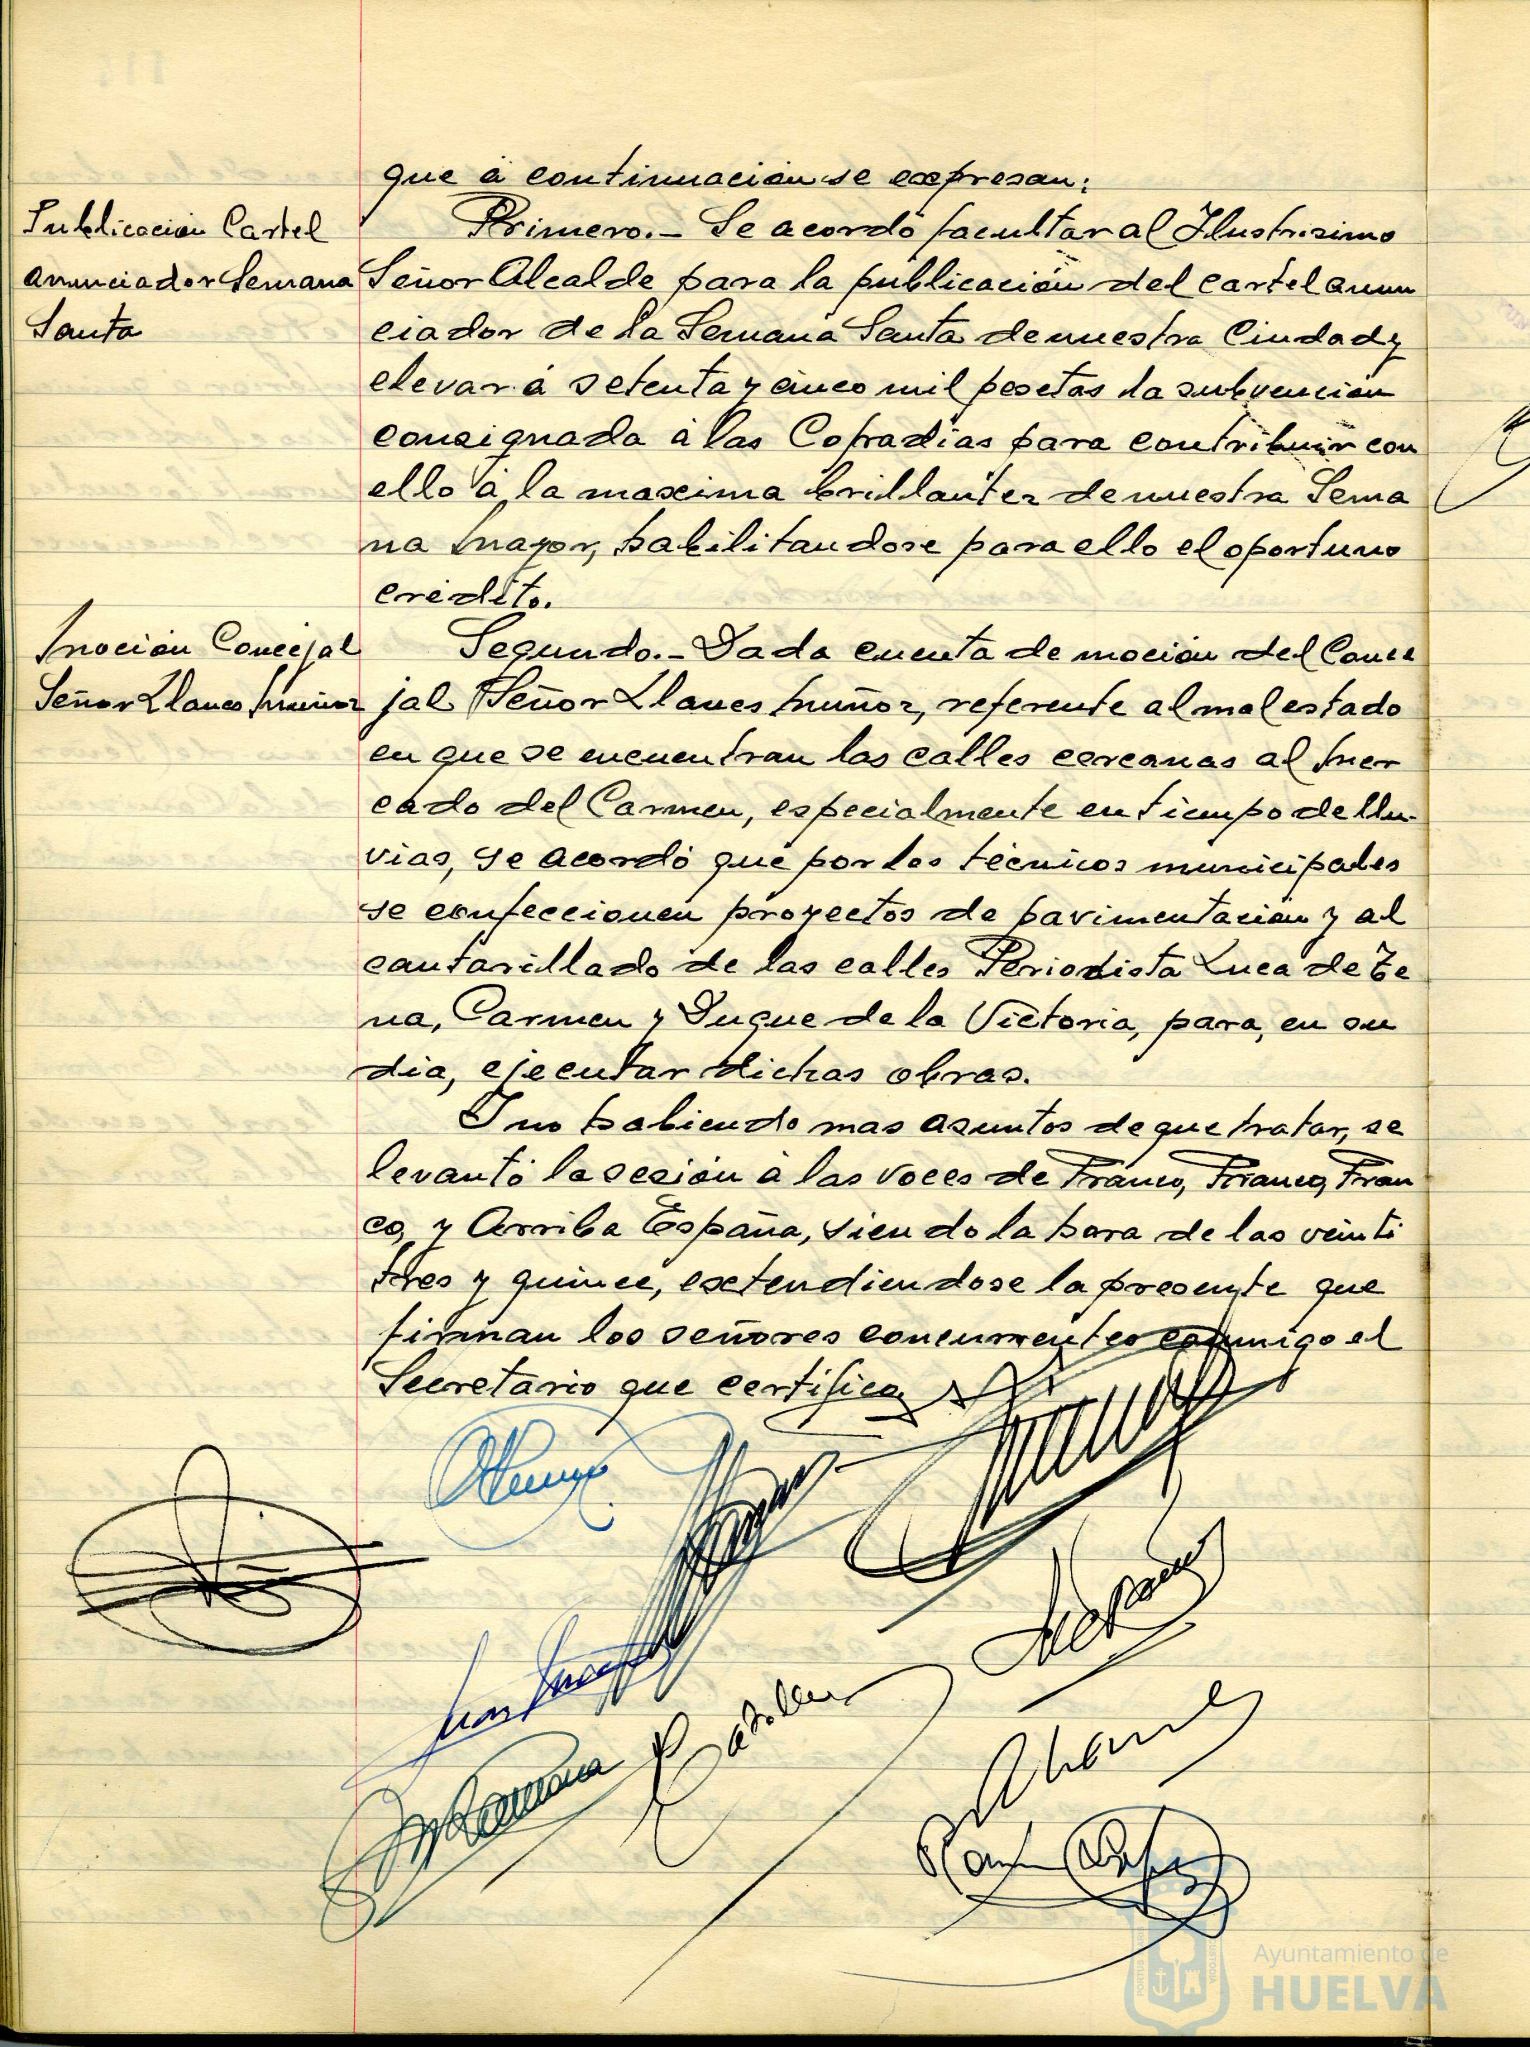 que á continuación se expresan:
Publicación Cartel
anunciador Semana
Santa
Primero.- Se acordó facultar al Ilustrisimo
Señor Alcalde para la publicación del cartel anun
ciador de la Semana Santa de nuestra Ciudad y
elevar á setenta y cinco mil pesetas la subvención
consignada á las Cofradías para contribuir con
ello á la maxima brillantez de nuestra Sema
na Mayor, habilitandose para ello el oportuno
crédito.
Moción Concejal
Señor Llanes Muñoz
Segundo.- Dada cuenta de moción del Conce
jal Señor Llanes Muñoz, referente al mal estado
en que se encuentran las calles cercanas al Mer
cado del Carmen, especialmente en tiempo de llu-
vias, se acordó que por los técnicos municipales
se confeccionen proyectos de pavimentación y al
cantarillado de las calles Periodista Luca de Te
na, Carmen y Duque de la Victoria, para, en su
dia, ejecutar dichas obras.
Y no habiendo mas asuntos de que tratar, se
levantó la sesión á las voces de Franco, Franco, Fran
co, y Arriba España, siendo la hora de las veinti
tres y quince, extendiendose la presente que
firman los señores concurrentes conmigo el
Secretario que certifico,
Ayuntamiento de
HUELVA